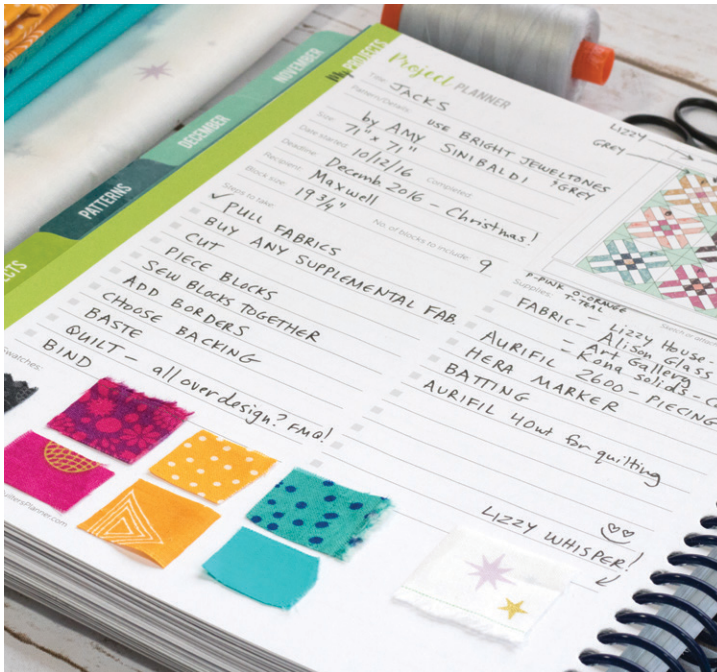 Project PLANNER
My PROJECTS
NOVEMBER
DECEMBER
PATTERNS
Title: JACKS
Pattern/Details: USE BRIGHT JEWELTONES
& GREY
by AMY SINIBALDI
Size: 71" x 71"
Date started: 10/12/16 Completed:
Deadline: Decemb 2016 - Christmas!
Recipient: Maxwell
Block size: 19 3/4" No. of blocks to include: 9
Steps to take:
✓ PULL FABRICS
BUY ANY SUPPLEMENTAL FAB.
CUT
PIECE BLOCKS
SEW BLOCKS TOGETHER
ADD BORDERS
CHOOSE BACKING
BASTE
QUILT - all over design? FMQ!
BIND
Swatches:
LIZZY
GREY
P-PINK O-ORANGE
T-TEAL
Sketch or
Supplies:
FABRIC - LIZZY HOUSE -
- Alison Glass
- Art Gallery
- Kona Solids -
AURIFIL 2600 - PIECING
HERA MARKER
BATTING
AURIFIL 40wt for quilting
LIZZY WHISPER!